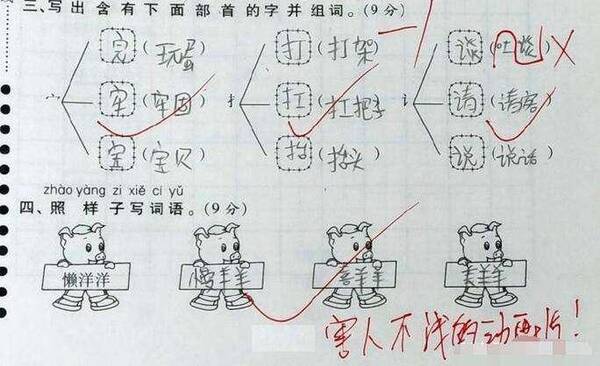 三、写出含有下面部首的字并组词。(9分)
完(玩蛋) 打(打架) 谈(吐痰)
宀 牢(牢固) 扌 扛(扛把子) 讠 请(请客)
宝(宝贝) 抬(抬头) 说(说话)
zhào yàng zi xiě cí yǔ
四、照样子写词语。(9分)
懒洋洋 慢羊羊 喜羊羊 美羊羊
害人不浅的动画片!